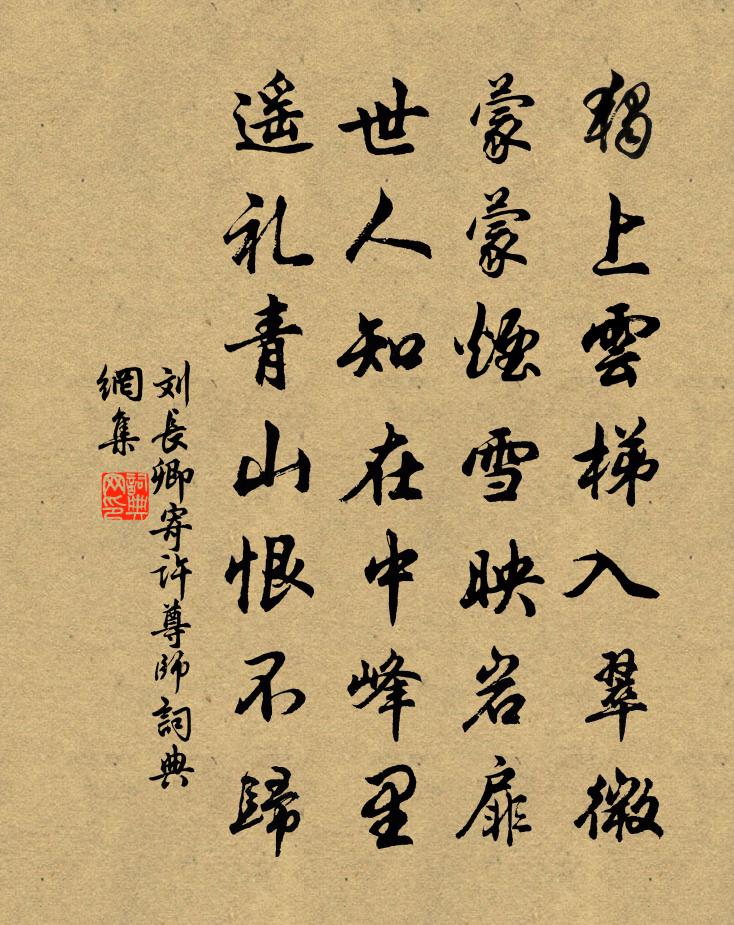 獨上雲梯入翠微
蒙蒙煙雪映岩扉
世人知在中峰里
遥礼青山恨不歸
刘長卿寄许尊師詞典
網集
詞典
网印